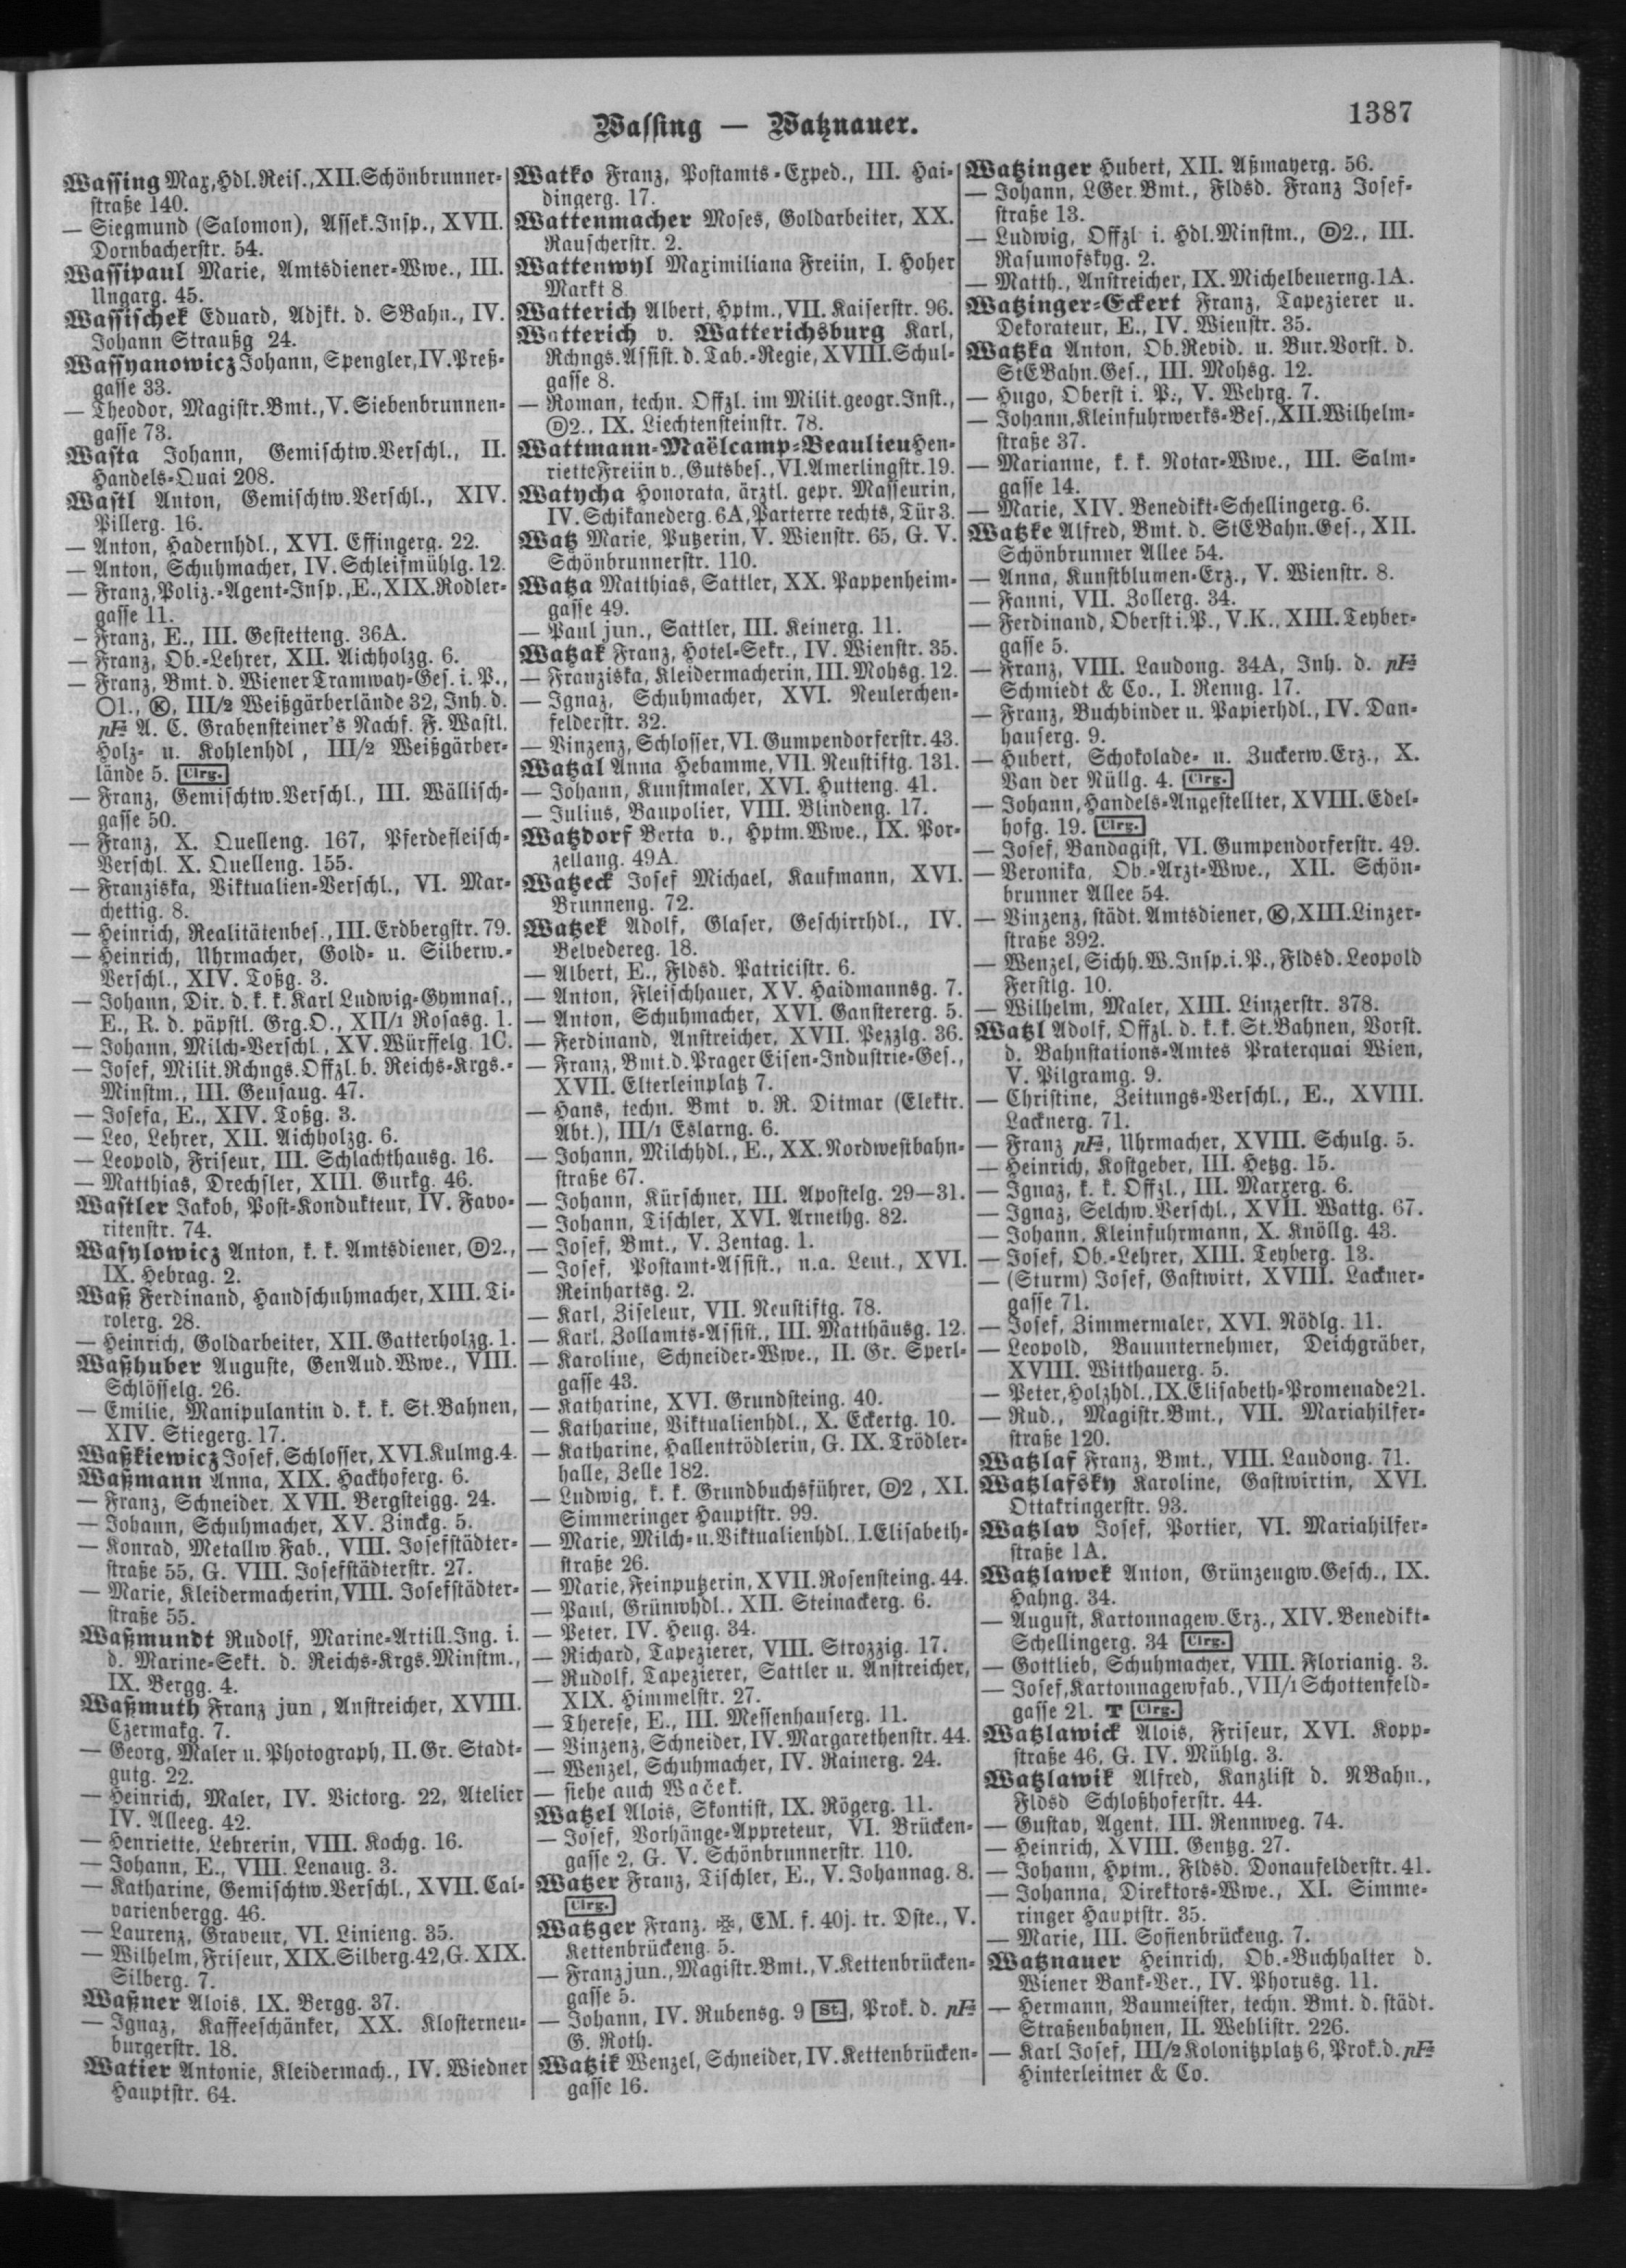 Wassing — Watznauer.
1387
Wassing Max, Hdl. Reis., XII. Schönbrunner-
straße 140.
— Siegmund (Salomon), Assek. Insp., XVII.
Dornbacherstr. 54.
Wassipaul Marie, Amtsdiener-Wwe., III.
Ungarg. 45.
Wassischek Eduard, Adjkt. d. SBahn., IV.
Johann Straußg 24.
Wassyanowicz Johann, Spengler, IV. Preß-
gasse 33.
— Theodor, Magistr. Bmt., V. Siebenbrunnen-
gasse 73.
Wasta Johann, Gemischtw. Verschl., II.
Handels-Quai 208.
Wastl Anton, Gemischtw. Verschl., XIV.
Pillerg. 16.
— Anton, Hadernhdl., XVI. Effingerg. 22.
— Anton, Schuhmacher, IV. Schleifmühlg. 12.
— Franz, Poliz.-Agent-Insp., E., XIX. Rodler-
gasse 11.
— Franz, E., III. Gestetteng. 36A.
— Franz, Ob.-Lehrer, XII. Aichholzg. 6.
— Franz, Bmt. d. Wiener Tramway-Ges. i. P.,
○1., Ⓚ, III/2 Weißgärberlände 32, Inh. d.
pF A. C. Grabensteiner's Nachf. F. Wastl.
Holz- u. Kohlenhdl, III/2 Weißgärber-
lände 5. Clrg.
— Franz, Gemischtw. Verschl., III. Wällisch-
gasse 50.
— Franz, X. Quelleng. 167, Pferdefleisch-
Verschl. X. Quelleng. 155.
— Franziska, Viktualien-Verschl., VI. Mar-
chettig. 8.
— Heinrich, Realitätenbes., III. Erdbergstr. 79.
— Heinrich, Uhrmacher, Gold- u. Silberw.-
Verschl., XIV. Toßg. 3.
— Johann, Dir. d. k. k. Karl Ludwig-Gymnas.,
E., R. d. päpstl. Grg. O., XII/1 Rosasg. 1.
— Johann, Milch-Verschl., XV. Würffelg. 1C.
— Josef, Milit. Rchngs. Offzl. b. Reichs-Krgs.-
Minstm., III. Geusaug. 47.
— Josefa, E., XIV. Toßg. 3.
— Leo, Lehrer, XII. Aichholzg. 6.
— Leopold, Friseur, III. Schlachthausg. 16.
— Matthias, Drechsler, XIII. Gurkg. 46.
Wastler Jakob, Post-Kondukteur, IV. Favo-
ritenstr. 74.
Wasylowicz Anton, k. k. Amtsdiener, Ⓓ2.,
IX. Hebrag. 2.
Waß Ferdinand, Handschuhmacher, XIII. Ti-
rolerg. 28.
— Heinrich, Goldarbeiter, XII. Gatterholzg. 1.
Waßhuber Auguste, GenAud. Wwe., VIII.
Schlösselg. 26.
— Emilie, Manipulantin d. k. k. St. Bahnen,
XIV. Stiegerg. 17.
Waßkiewicz Josef, Schlosser, XVI. Kulmg. 4.
Waßmann Anna, XIX. Hackhoferg. 6.
— Franz, Schneider, XVII. Bergsteigg. 24.
— Johann, Schuhmacher, XV. Zinckg. 5.
— Konrad, Metallw Fab., VIII. Josefstädter-
straße 55, G. VIII. Josefstädterstr. 27.
— Marie, Kleidermacherin, VIII. Josefstädter-
straße 55.
Waßmundt Rudolf, Marine-Artill. Ing. i.
d. Marine-Sekt. d. Reichs-Krgs. Minstm.,
IX. Bergg. 4.
Waßmuth Franz jun, Anstreicher, XVIII.
Czermakg. 7.
— Georg, Maler u. Photograph, II. Gr. Stadt-
gutg. 22.
— Heinrich, Maler, IV. Victorg. 22, Atelier
IV. Alleeg. 42.
— Henriette, Lehrerin, VIII. Kochg. 16.
— Johann, E., VIII. Lenaug. 3.
— Katharine, Gemischtw. Verschl., XVII. Cal-
varienbergg. 46.
— Laurenz, Graveur, VI. Linieng. 35.
— Wilhelm, Friseur, XIX. Silberg. 42, G. XIX.
Silberg. 7.
Waßner Alois, IX. Bergg. 37.
— Ignaz, Kaffeeschänker, XX. Klosterneu-
burgerstr. 18.
Watier Antonie, Kleidermach., IV. Wiedner
Hauptstr. 64.
Watko Franz, Postamts-Exped., III. Hai-
dingerg. 17.
Wattenmacher Moses, Goldarbeiter, XX.
Rauscherstr. 2.
Wattenwyl Maximiliana Freiin, I. Hoher
Markt 8
Watterich Albert, Hptm., VII. Kaiserstr. 96.
Watterich v. Watterichsburg Karl,
Rchngs. Assist. d. Tab.-Regie, XVIII. Schul-
gasse 8.
— Roman, techn. Offzl. im Milit. geogr. Inst.,
Ⓓ2., IX. Liechtensteinstr. 78.
Wattmann-Maëlcamp-Beaulieu Hen-
riette Freiin v., Gutsbes., VI. Amerlingstr. 19.
Watycha Honorata, ärztl. gepr. Masseurin,
IV. Schikanederg. 6A, Parterre rechts, Tür 3.
Watz Marie, Putzerin, V. Wienstr. 65, G. V.
Schönbrunnerstr. 110.
Watza Matthias, Sattler, XX. Pappenheim-
gasse 49.
— Paul jun., Sattler, III. Keinerg. 11.
Watzak Franz, Hotel-Sekr., IV. Wienstr. 35.
— Franziska, Kleidermacherin, III. Mohsg. 12.
— Ignaz, Schuhmacher, XVI. Neulerchen-
felderstr. 32.
— Vinzenz, Schlosser, VI. Gumpendorferstr. 43.
Watzal Anna Hebamme, VII. Neustiftg. 131.
— Johann, Kunstmaler, XVI. Hutteng. 41.
— Julius, Baupolier, VIII. Blindeng. 17.
Watzdorf Berta v., Hptm. Wwe., IX. Por-
zellang. 49A.
Watzeck Josef Michael, Kaufmann, XVI.
Brunneng. 72.
Watzek Adolf, Glaser, Geschirrhdl., IV.
Belvedereg. 18.
— Albert, E., Fldsd. Patricistr. 6.
— Anton, Fleischhauer, XV. Haidmannsg. 7.
— Anton, Schuhmacher, XVI. Gansterergg. 5.
— Ferdinand, Anstreicher, XVII. Pezzlg. 36.
— Franz, Bmt. d. Prager Eisen-Industrie-Ges.,
XVII. Elterleinplatz 7.
— Hans, techn. Bmt v. R. Ditmar (Elektr.
Abt.), III/1 Eslarng. 6.
— Johann, Milchhdl., E., XX. Nordwestbahn-
straße 67.
— Johann, Kürschner, III. Apostelg. 29—31.
— Johann, Tischler, XVI. Arnethg. 82.
— Josef, Bmt., V. Zentag. 1.
— Josef, Postamt-Assist., n.a. Leut., XVI.
Reinhartsg. 2.
— Karl, Ziseleur, VII. Neustiftg. 78.
— Karl, Zollamts-Assist., III. Matthäusg. 12.
— Karoline, Schneider-Wwe., II. Gr. Sperl-
gasse 43.
— Katharine, XVI. Grundsteing. 40.
— Katharine, Viktualienhdl., X. Eckertg. 10.
— Katharine, Hallentrödlerin, G. IX. Trödler-
halle, Zelle 182.
— Ludwig, k. k. Grundbuchsführer, Ⓓ2, XI.
Simmeringer Hauptstr. 99.
— Marie, Milch- u. Viktualienhdl., I. Elisabeth-
straße 26.
— Marie, Feinputzerin, XVII. Rosensteing. 44.
— Paul, Grünwhdl., XII. Steinackerg. 6.
— Peter, IV. Heug. 34.
— Richard, Tapezierer, VIII. Strozzig. 17.
— Rudolf, Tapezierer, Sattler u. Anstreicher,
XIX. Himmelstr. 27.
— Therese, E., III. Messenhauserg. 11.
— Vinzenz, Schneider, IV. Margarethenstr. 44.
— Wenzel, Schuhmacher, IV. Rainerg. 24.
— siehe auch Waček.
Watzel Alois, Skontist, IX. Rögerg. 11.
— Josef, Vorhänge-Appreteur, VI. Brücken-
gasse 2, G. V. Schönbrunnerstr. 110.
Watzer Franz, Tischler, E., V. Johannag. 8.
Clrg.
Watzger Franz, EM. f. 40j. tr. Dste., V.
Kettenbrückeng. 5.
— Franz jun., Magistr. Bmt., V. Kettenbrücken-
gasse 5.
— Johann, IV. Rubensg. 9 St., Prok. d. pF
G. Roth.
Watzik Wenzel, Schneider, IV. Kettenbrücken-
gasse 16.
Watzinger Hubert, XII. Aßmayerg. 56.
— Johann, LGer. Bmt., Fldsd. Franz Josef-
straße 13.
— Ludwig, Offzl i. Hdl. Minstm., Ⓓ2., III.
Rasumofskyg. 2.
— Matth., Anstreicher, IX. Michelbeuerng. 1A.
Watzinger-Eckert Franz, Tapezierer u.
Dekorateur, E., IV. Wienstr. 35.
Watzka Anton, Ob. Revid. u. Bur. Vorst. d.
StEBahn. Ges., III. Mohsg. 12.
— Hugo, Oberst i. P., V. Wehrg. 7.
— Johann, Kleinfuhrwerks-Bes., XII. Wilhelm-
straße 37.
— Marianne, k. k. Notar-Wwe., III. Salm-
gasse 14.
— Marie, XIV. Benedikt-Schellingerg. 6.
Watzke Alfred, Bmt. d. StEBahn. Ges., XII.
Schönbrunner Allee 54.
— Anna, Kunstblumen-Erz., V. Wienstr. 8.
— Fanni, VII. Zollerg. 34.
— Ferdinand, Oberst i. P., V. K., XIII. Teyber-
gasse 5.
— Franz, VIII. Laudong. 34A, Inh. d. pF
Schmiedt & Co., I. Renng. 17.
— Franz, Buchbinder u. Papierhdl., IV. Dan-
hauserg. 9.
— Hubert, Schokolade- u. Zuckerw. Erz., X.
Van der Nüllg. 4. Clrg.
— Johann, Handels-Angestellter, XVIII. Edel-
hofg. 19. Clrg.
— Josef, Bandagist, VI. Gumpendorferstr. 49.
— Veronika, Ob.-Arzt-Wwe., XII. Schön-
brunner Allee 54.
— Vinzenz, städt. Amtsdiener, Ⓚ, XIII. Linzer-
straße 392.
— Wenzel, Sichh. W. Insp. i. P., Fldsd. Leopold
Ferstlg. 10.
— Wilhelm, Maler, XIII. Linzerstr. 378.
Watzl Adolf, Offzl. d. k. k. St. Bahnen, Vorst.
d. Bahnstations-Amtes Praterquai Wien,
V. Pilgramg. 9.
— Christine, Zeitungs-Verschl., E., XVIII.
Lacknerg. 71.
— Franz pF, Uhrmacher, XVIII. Schulg. 5.
— Heinrich, Kostgeber, III. Hetzg. 15.
— Ignaz, k. k. Offzl., III. Marxerg. 6.
— Ignaz, Selchw. Verschl., XVII. Wattg. 67.
— Johann, Kleinfuhrmann, X. Knöllg. 43.
— Josef, Ob.-Lehrer, XIII. Teyberg. 13.
— (Sturm) Josef, Gastwirt, XVIII. Lackner-
gasse 71.
— Josef, Zimmermaler, XVI. Nödlg. 11.
— Leopold, Bauunternehmer, Deichgräber,
XVIII. Witthauerg. 5.
— Peter, Holzhdl., IX. Elisabeth-Promenade 21.
— Rud., Magistr. Bmt., VII. Mariahilfer-
straße 120.
Watzlaf Franz, Bmt., VIII. Laudong. 71.
Watzlafsky Karoline, Gastwirtin, XVI.
Ottakringerstr. 93.
Watzlav Josef, Portier, VI. Mariahilfer-
straße 1A.
Watzlawek Anton, Grünzeugw. Gesch., IX.
Hahng. 34.
— August, Kartonnagew. Erz., XIV. Benedikt-
Schellingerg. 34 Clrg.
— Gottlieb, Schuhmacher, VIII. Florianig. 3.
— Josef, Kartonnagewfab., VII/1 Schottenfeld-
gasse 21. T Clrg.
Watzlawick Alois, Friseur, XVI. Kopp-
straße 46, G. IV. Mühlg. 3.
Watzlawik Alfred, Kanzlist d. NBahn.,
Fldsd Schloßhoferstr. 44.
— Gustav, Agent, III. Rennweg. 74.
— Heinrich, XVIII. Gentzg. 27.
— Johann, Hptm., Fldsd. Donaufelderstr. 41.
— Johanna, Direktors-Wwe., XI. Simme-
ringer Hauptstr. 35.
— Marie, III. Sofienbrückeng. 7.
Watznauer Heinrich, Ob.-Buchhalter d.
Wiener Bank-Ver., IV. Phorusg. 11.
— Hermann, Baumeister, techn. Bmt. d. städt.
Straßenbahnen, II. Wehlistr. 226.
— Karl Josef, III/2 Kolonitzplatz 6, Prok. d. pF
Hinterleitner & Co.